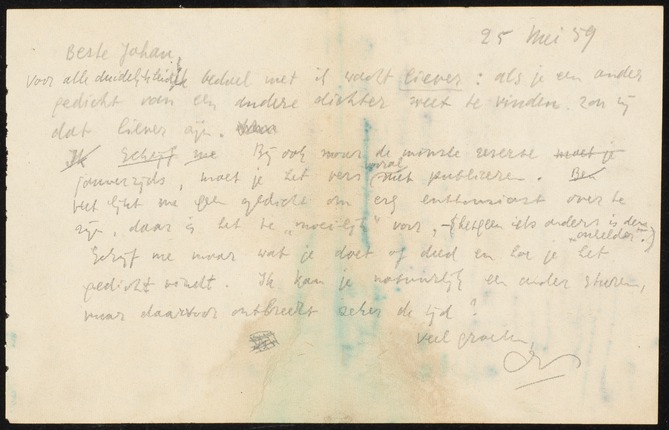 25 Mei 59
Beste Johan,
Voor alle duidelijkheid, bedoel met ik wacht liever: als je een ander
gedicht van een andere dichter weet te vinden. zou ij
dat liever zijn.
Ik Schrijf me Bij ook maar de minste reserve moet je
jouwerzijds, moet je het vers vooral niet publiceren. Ben
Het lijkt me geen gedicht om erg enthousiast over te
zijn, daar is het te "moeilijk" voor, - (hetgeen iets anders is dan
"onhelder".)
Schrijf me maar wat je doet of deed en hoe je het
gedicht vindt. Ik kan je natuurlijk een ander sturen,
maar daarvoor ontbreekt zeker de tijd?
Veel groeten,